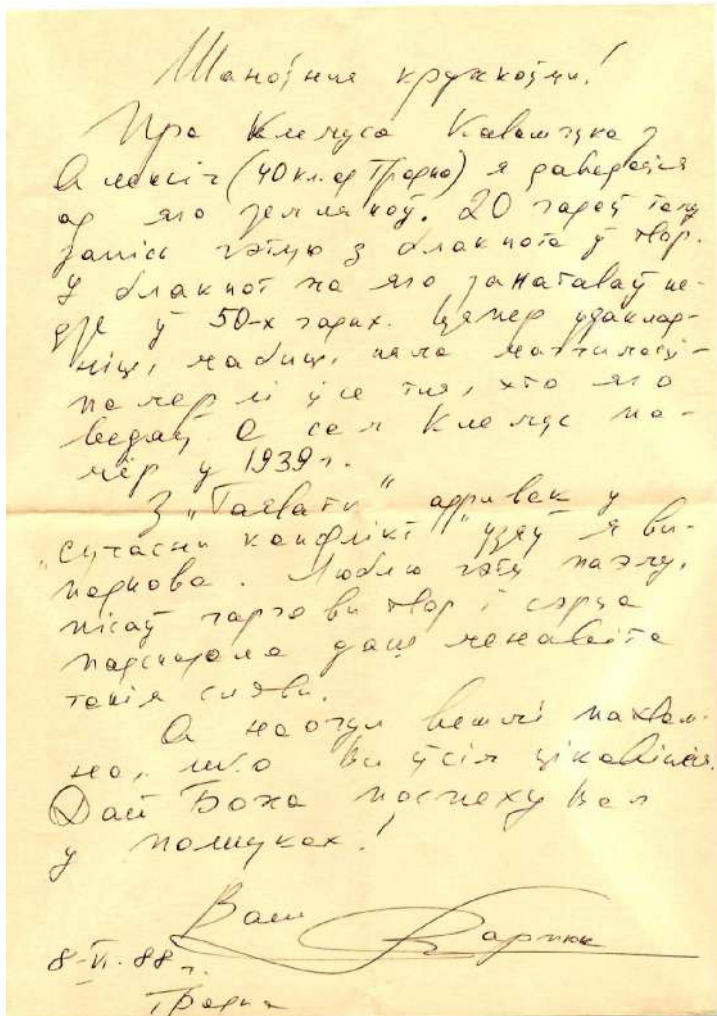 Шаноўныя кружкоўцы!
Пра Клемуса з
Алексіч (40 км. ад Гродна) я даведаўся
ад яго землякоў. 20 гадоў таму
запісы гэтыю з блакнота ў твор.
У блакнот жа яго занатаваў не-
дзе ў 50-х гадах. Цяпер удаклад-
ніць, мабыць, няма магчымасці –
памерлі ўсе тыя, хто яго
ведаў. А сам Клемус па-
мёр у 1939 г.
З „Гаяваты“ адрывак у
„сучасны канфлікт“ узяў я вы-
падкова. Люблю гэту паэму,
пісаў гарадзі твор і сэрца
падсказала даць менавіта
такія словы.
А наогул вельмі пахваль-
на, што вы ўсім цікавіцеся.
Дай Божа поспеху Вам
у пошуках!
Ваш Карпюк
8-VI-88 г.
Гродна